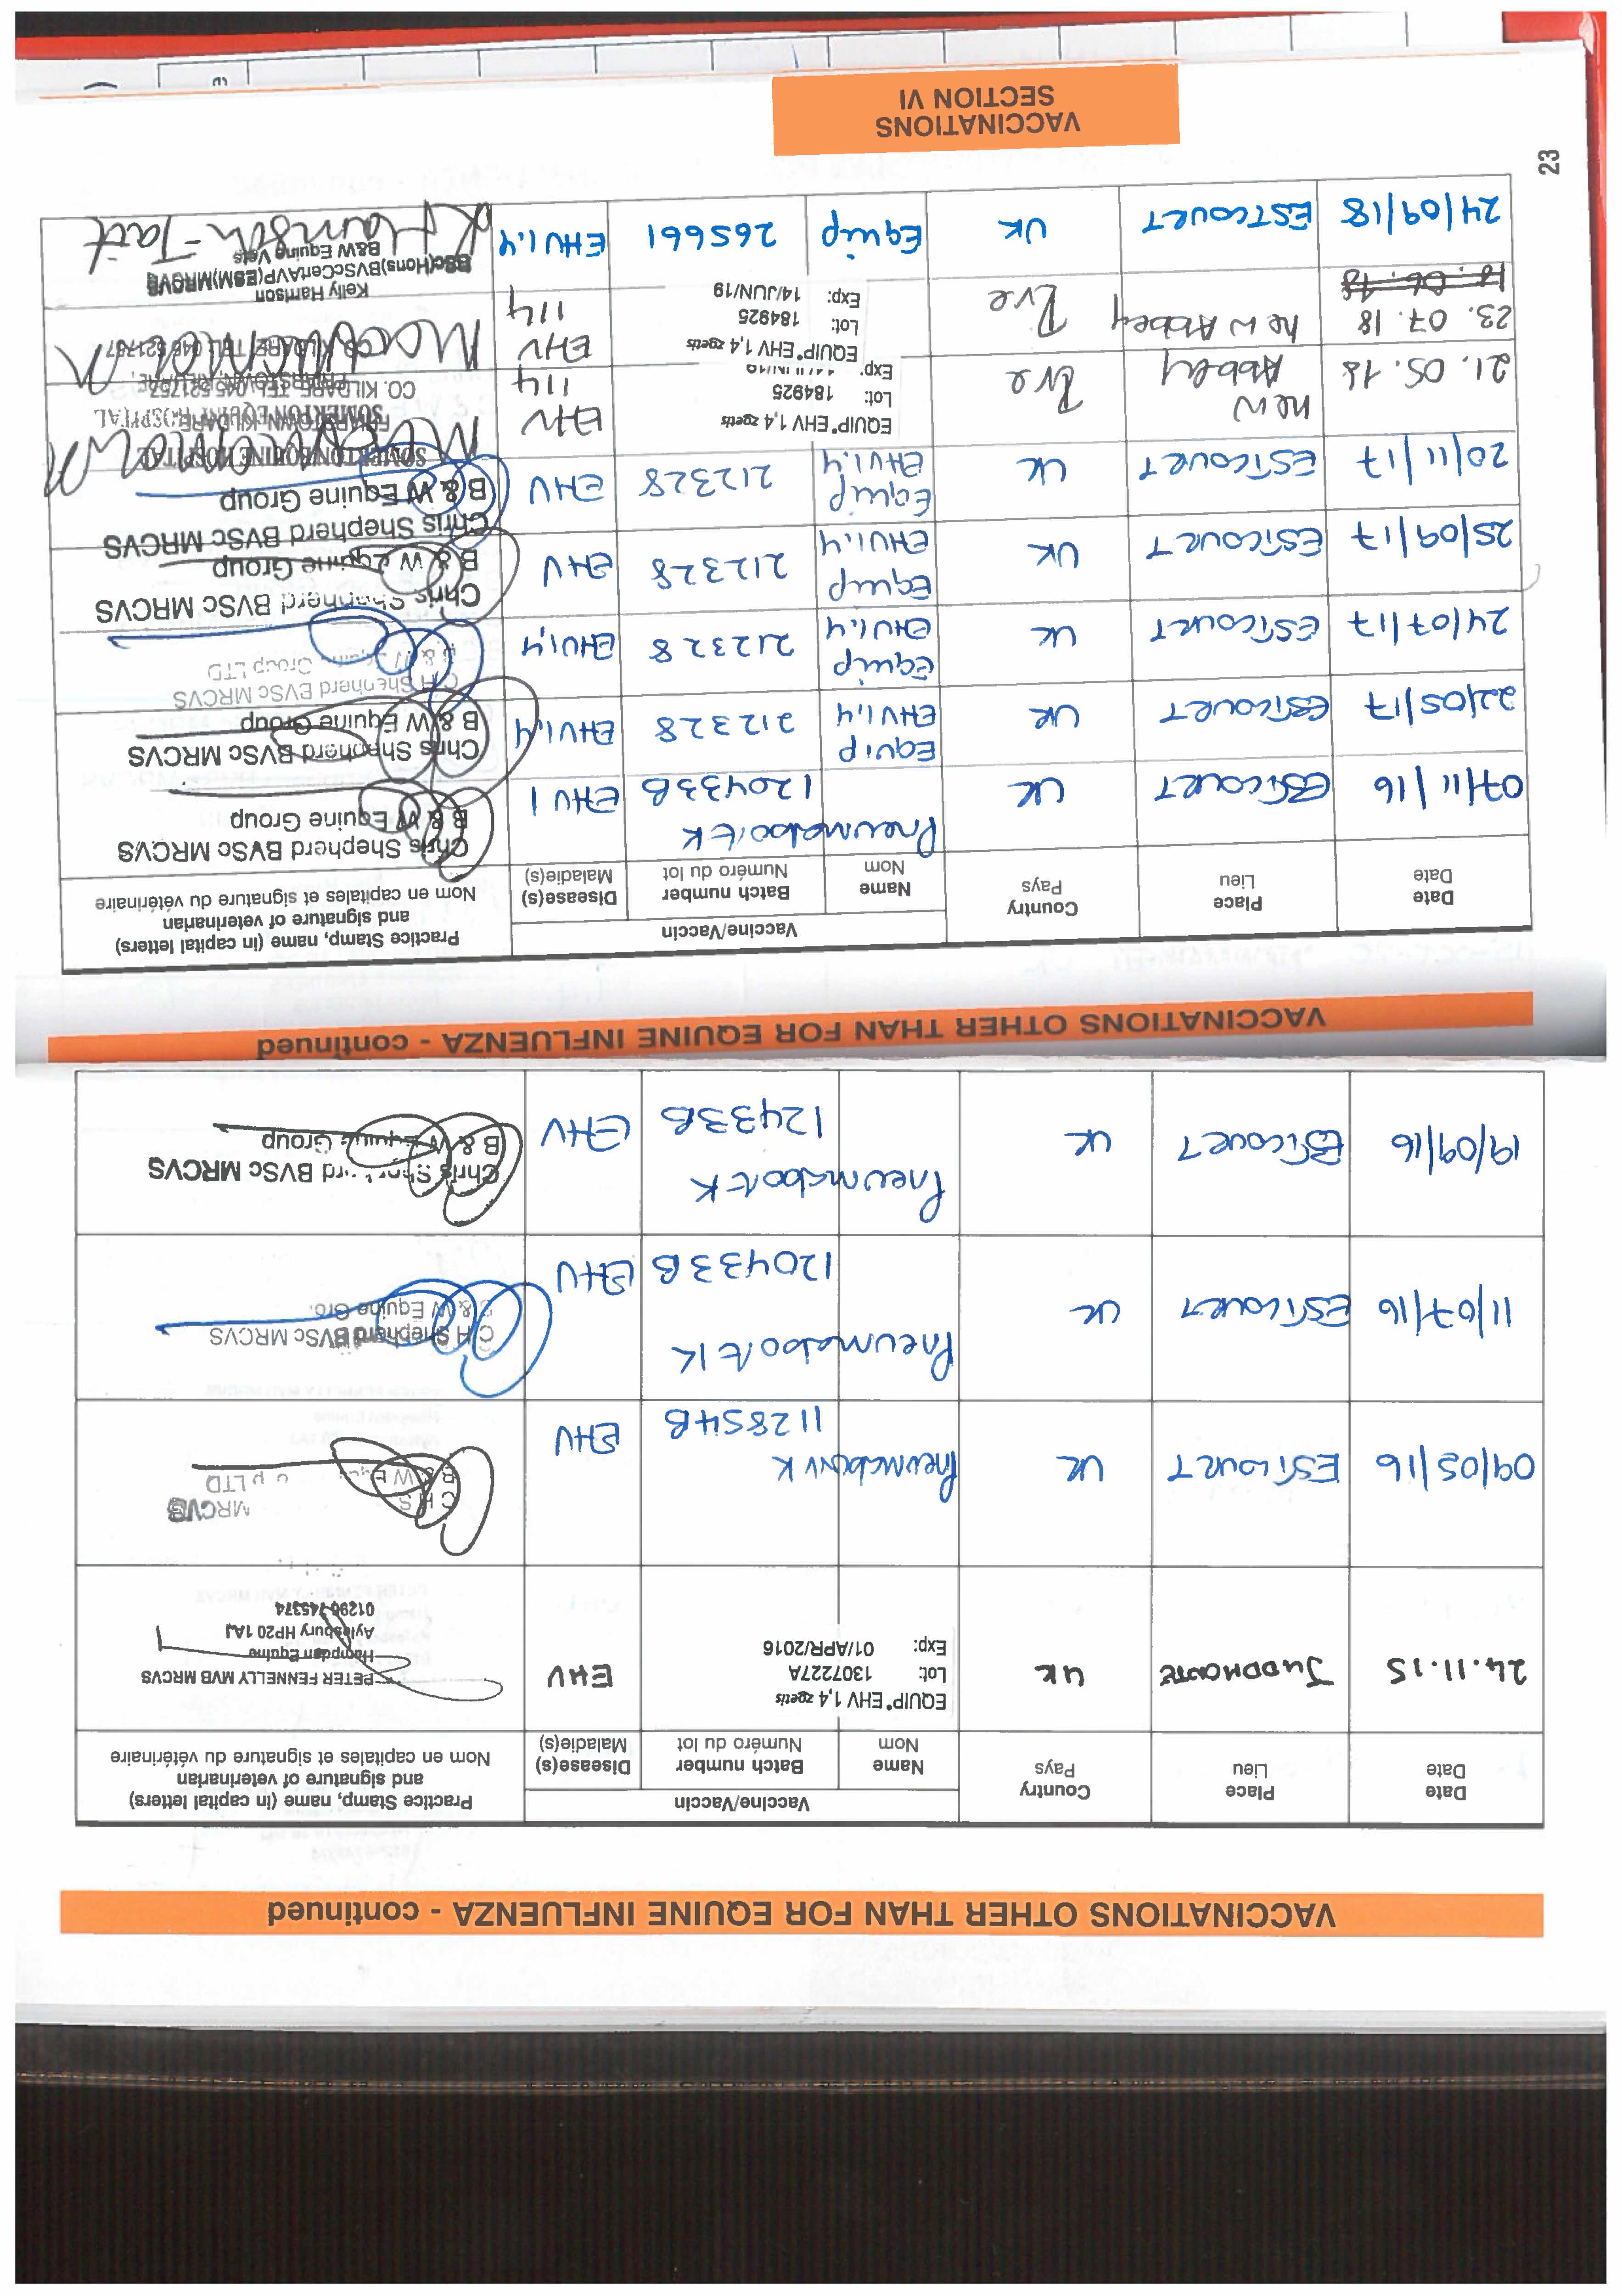 VACCINATIONS OTHER THAN FOR EQUINE INFLUENZA - continued
Date
Date
Place
Lieu
Country
Pays
Vaccine/Vaccin
Name
Nom
Batch number
Numéro du lot
Disease(s)
Maladie(s)
Practice Stamp, name (in capital letters)
and signature of veterinarian
Nom en capitales et signature du vétérinaire
24.11.15 JUDDMONTE UK
EQUIP® EHV 1,4 zoetis
Lot: 130722​7A
Exp: 01/APR/2016
EHV
PETER FENNELLY MVB MRCVS
Hampden Equine
Aylesbury HP20 1AJ
01296 745374
09/05/16 ESTCOURT UK
112854B
EHV
MRCVS
LTD
11/07/16 ESTCOURT UK
Pneumabort K
120433B
EHV
C H Shepherd BVSc MRCVS
B & W Equine Gro
19/09/16 ESTCOURT UK
Pneumabort K
12433B
EHV
Chris Shepherd BVSc MRCVS
B & W Equine Group
VACCINATIONS OTHER THAN FOR EQUINE INFLUENZA - continued
Date
Date
Place
Lieu
Country
Pays
Vaccine/Vaccin
Name
Nom
Batch number
Numéro du lot
Disease(s)
Maladie(s)
Practice Stamp, name (in capital letters)
and signature of veterinarian
Nom en capitales et signature du vétérinaire
07/11/16 ESTCOURT UK
Pneumabort K
120433B
EHV 1
Chris Shepherd BVSc MRCVS
B & W Equine Group
22/05/17 ESTCOURT UK
Equip
EHV1,4
212328
EHV1,4
Chris Shepherd BVSc MRCVS
B & W Equine Group
24/07/17 ESTCOURT UK
Equip
EHV1,4
212328
EHV1,4
C H Shepherd BVSc MRCVS
B & W Equine Group LTD
25/09/17 ESTCOURT UK
Equip
EHV1,4
212328
EHV
Chris Shepherd BVSc MRCVS
B & W Equine Group
20/11/17 ESTCOURT UK
Equip
EHV1,4
212328
EHV
Chris Shepherd BVSc MRCVS
B & W Equine Group
21.05.18 New Abbey Ire
EQUIP® EHV 1,4 zoetis
Lot: 184925
Exp:
EHV
1/4
SOMERTON EQUINE HOSPITAL
FRIARSTOWN, KILDARE,
CO. KILDARE. TEL: 045 521757
23.07.18
18.06.18
New Abbey Ire
EQUIP® EHV 1,4 zoetis
Lot: 184925
Exp: 14/JUN/19
EHV
1/4
SOMERTON EQUINE HOSPITAL
FRIARSTOWN, KILDARE,
CO. KILDARE. TEL: 045 521757
24/09/18 ESTCOURT UK Equip 265661 EHV1,4
Kelly Harrison
BSc(Hons)BVSCCertAVP(ESM)MRCVS
B&W Equine Vets
K Harrison-Tait
23
VACCINATIONS
SECTION VI